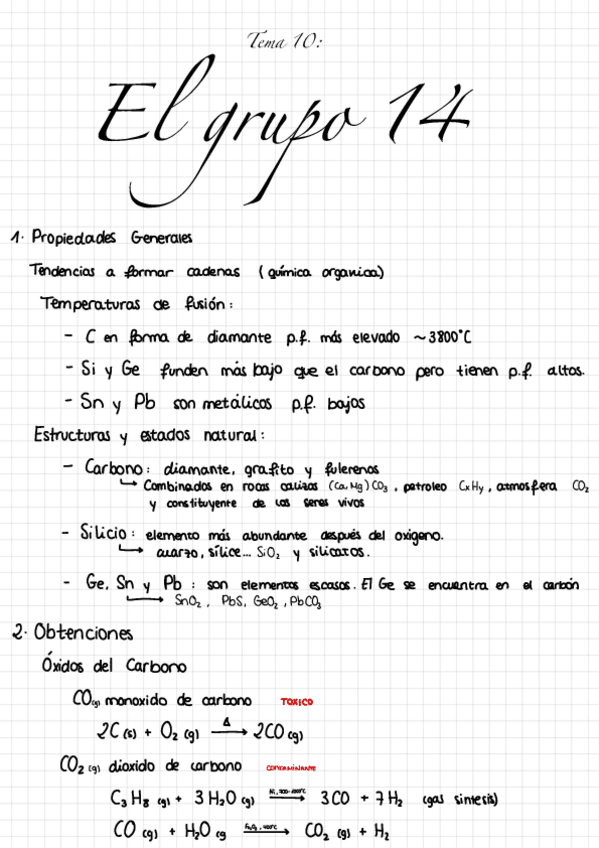 Tema 10:
El grupo 14
1. Propiedades Generales
Tendencias a formar cadenas (química organica)
Temperaturas de fusión:
- C en forma de diamante p.f. más elevado ~3800°C
- Si y Ge funden más bajo que el carbono pero tienen p.f. altos.
- Sn y Pb son metálicos p.f. bajos
Estructuras y estados natural:
- Carbono: diamante, grafito y fulerenos
↳ Combinados en rocas calizas (Ca, Mg)CO₃, petroleo CxHy, atmosfera CO₂
y constituyente de los seres vivos
- Silicio: elemento más abundante después del oxigeno.
↳ cuarzo, sílice... SiO₂ y silicatos.
- Ge, Sn y Pb: son elementos escasos. El Ge se encuentra en el carbón
↳ SnO₂, PbS, GeO₂, PbCO₃
2. Obtenciones
Óxidos del Carbono
CO(g) monoxido de carbono TOXICO
2C (s) + O₂ (g) →Δ 2CO (g)
CO₂ (g) dioxido de carbono CONTAMINANTE
C₃H₈ (g) + 3H₂O (g) → 3CO + 7H₂ (gas sintesis)
CO (g) + H₂O (g → CO₂ (g) + H₂